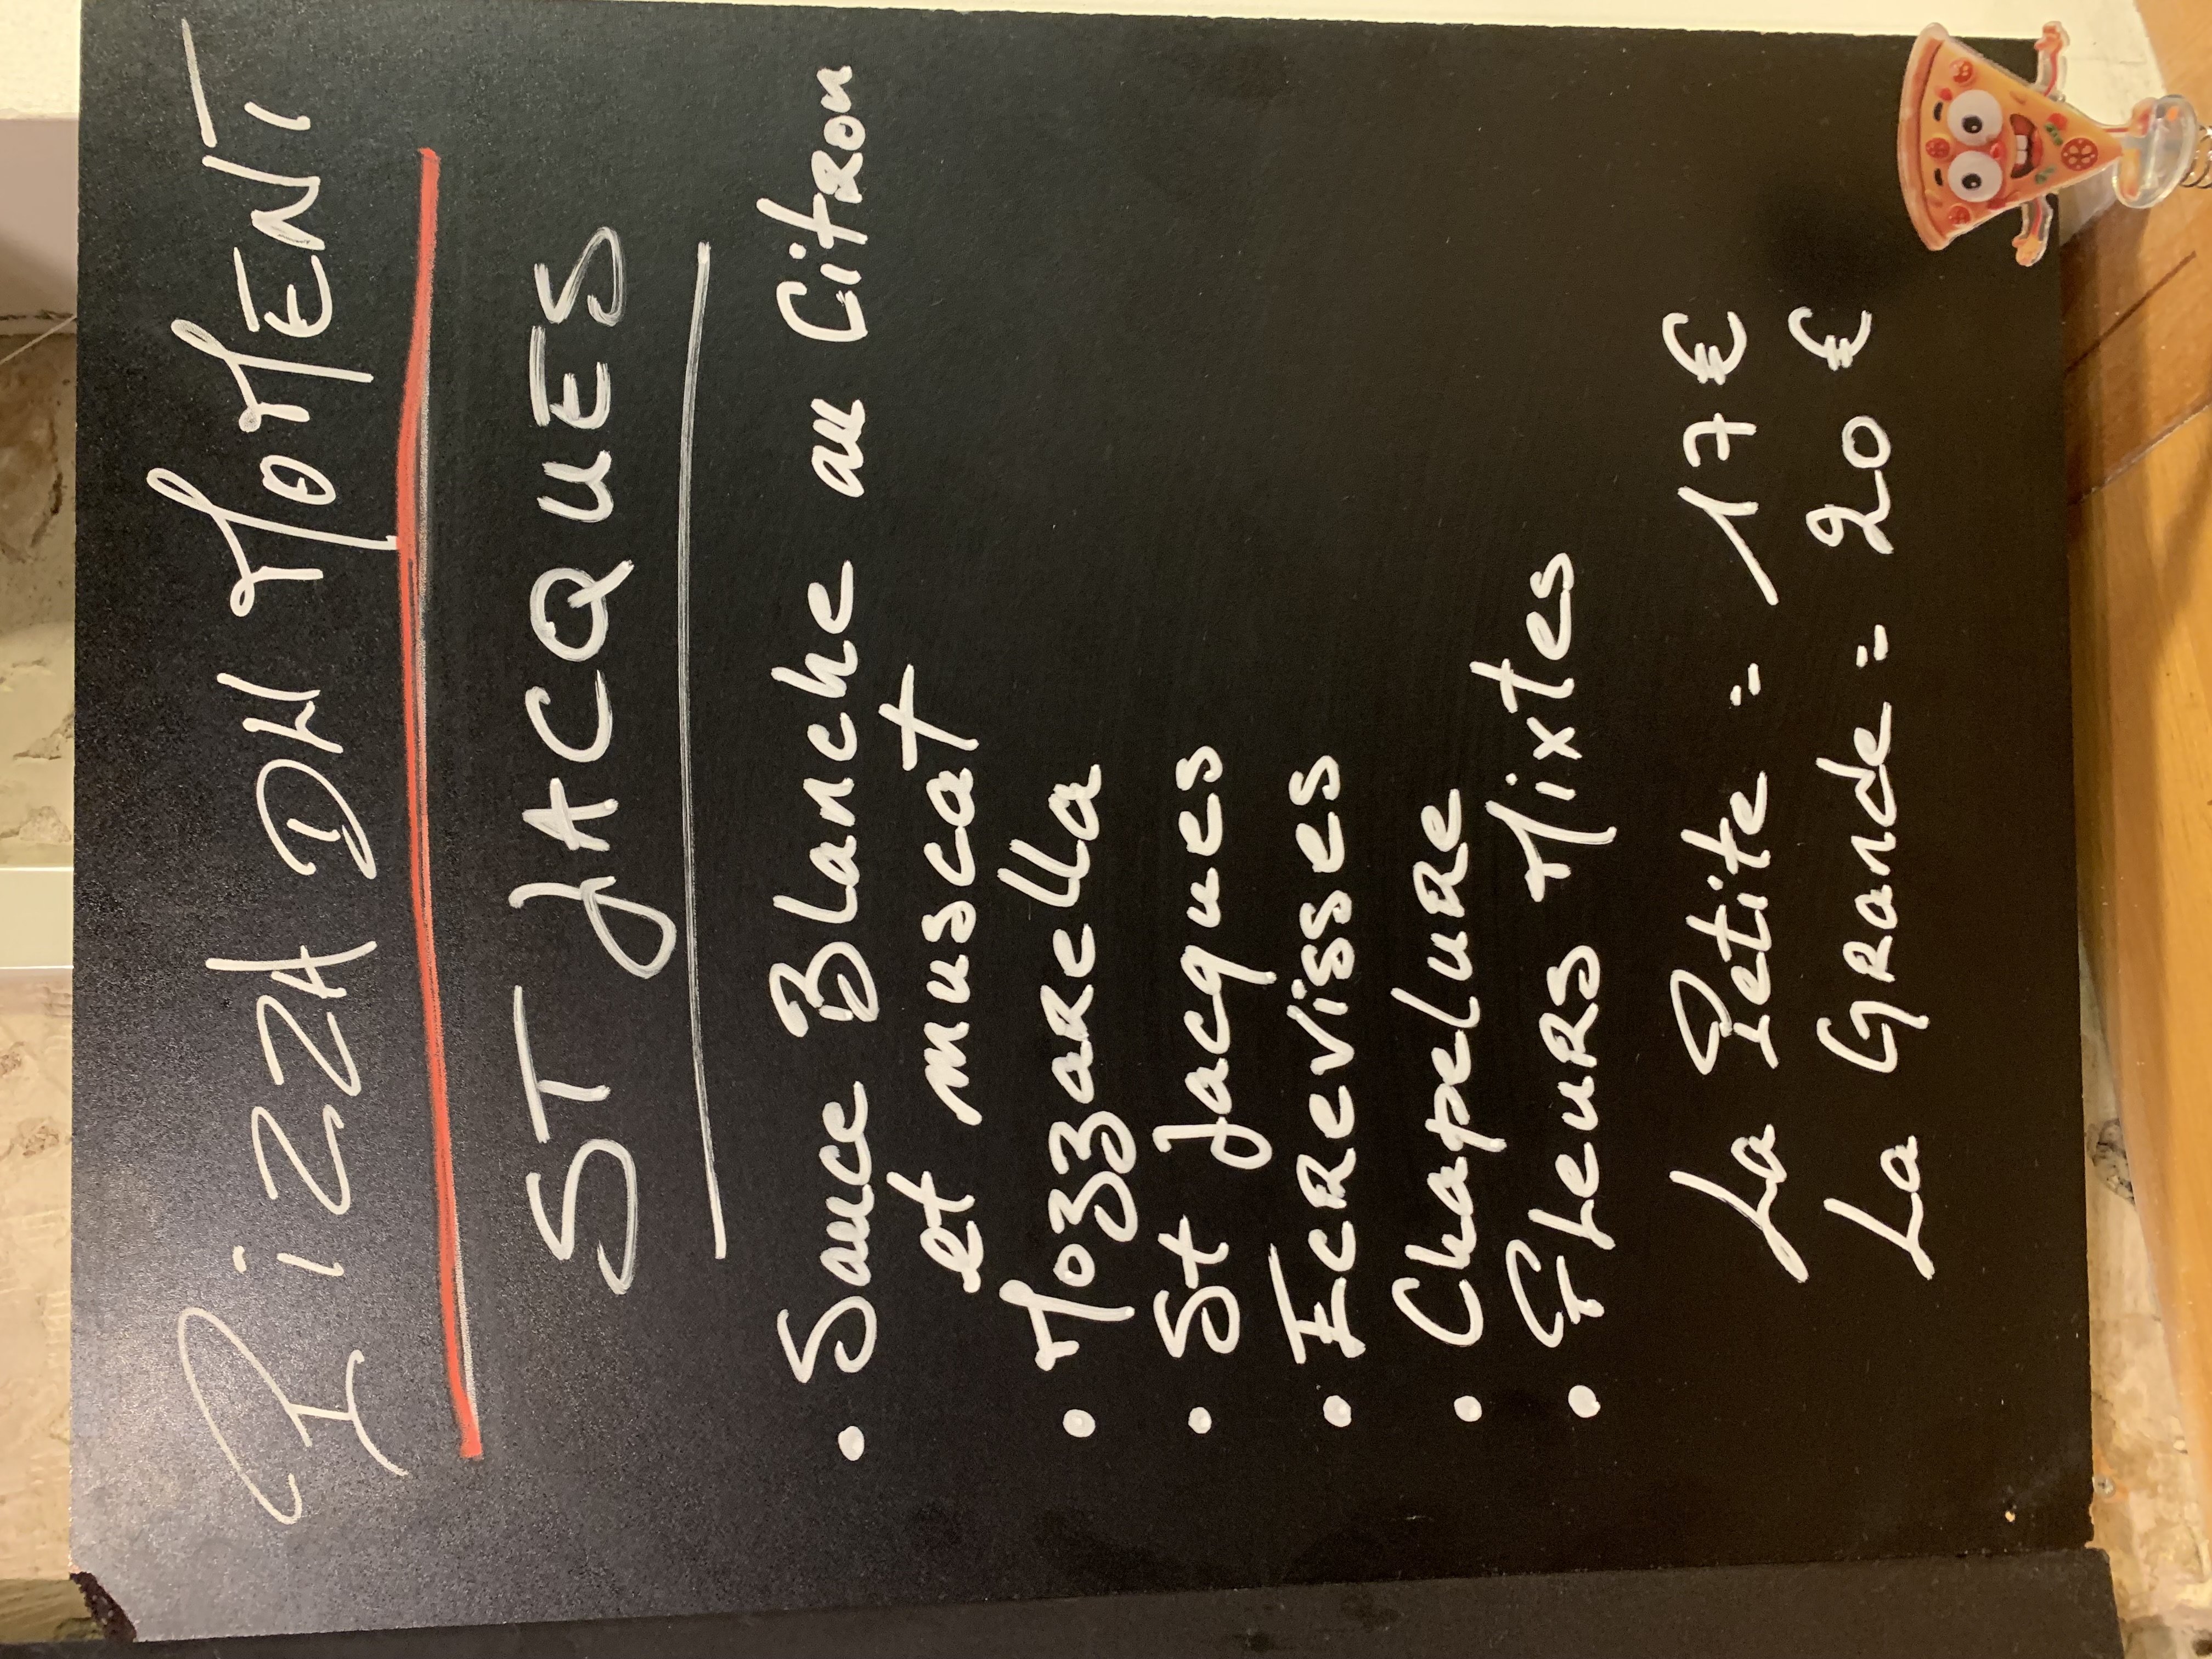 PiZZA DU MOMENT
ST JACQUES
• Sauce Blanche au Citron
et muscat
• Mozzarella
• St Jacques
• Ecrevisses
• Chapelure
• Fleurs Mixtes
La Petite = 17 €
La Grande = 20 €